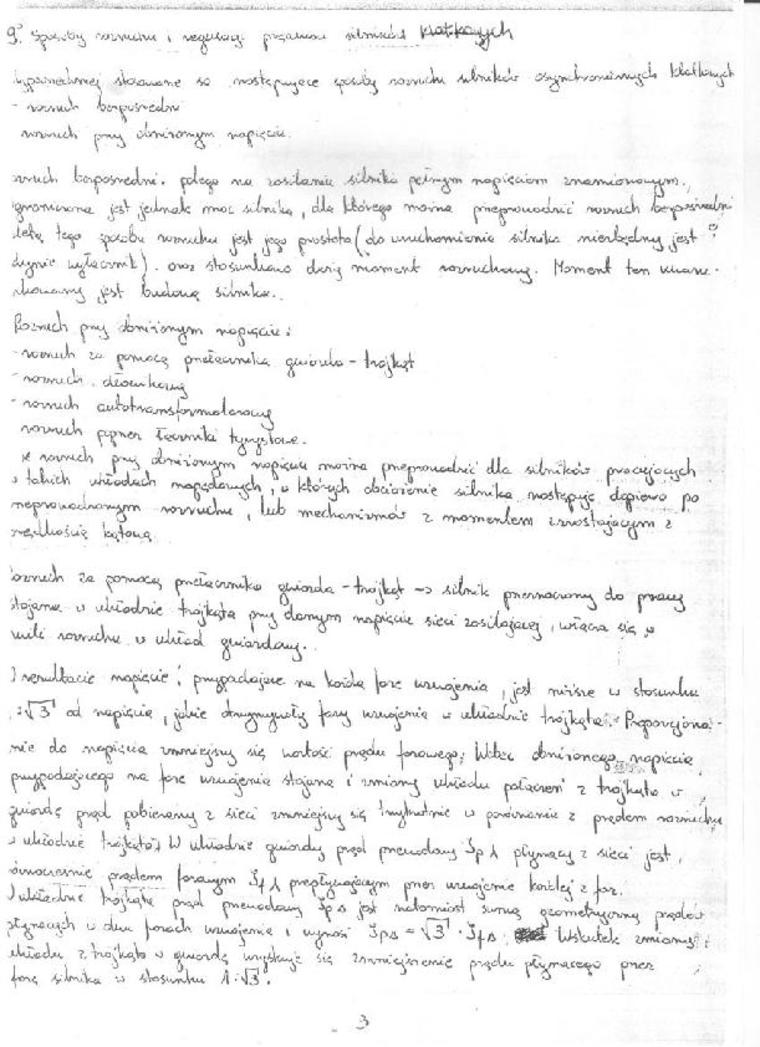 9. Sposoby rozruchu i regulacji prądu silników klatkowych
najpowszechniej stosowane są następujące sposoby rozruchu silników asynchronicznych klatkowych
- rozruch bezpośredni
rozruch przy obniżonym napięciu.
ozruch bezpośredni. polega na zasilaniu silnika pełnym napięciem znamionowym.
graniczona jest jednak moc silnika, dla którego można przeprowadzić rozruch bezpośredni
letą tego sposobu rozruchu jest jego prostota (do uruchomienia silnika niezbędny jest
dynie wyłącznik). oraz stosunkowo duży moment rozruchowy. Moment ten warun-
kowany jest budową silnika.
Rozruch przy obniżonym napięciu:
- rozruch za pomocą przełącznika gwiazda - trójkąt
- rozruch dławikowy
- rozruch autotransformatorowy
rozruch poprzez łączniki tyrystorowe.
rozruch przy obniżonym napięciu można przeprowadzić dla silników pracujących
w takich układach napędowych, w których obciążenie silnika następuje dopiero po
przeprowadzonym rozruchu, lub mechanizmów z momentem wzrastającym z
prędkością kątową
ozruch za pomocą przełącznika gwiazda - trójkąt -> silnik przeznaczony do pracy
stojana w układzie trójkąta przy danym napięciu sieci zasilającej, włącza się w
wili rozruchu w układ gwiazdowy.
W rezultacie napięcie przypadające na każdą fazę uzwojenia, jest niższe w stosunku
:√3 od napięcia, jakie otrzymywały fazy uzwojenia w układzie trójkąta. Proporcjonal-
nie do napięcia zmniejszy się wartość prądu fazowego; Wobec obniżonego napięcia
przypadającego na fazę uzwojenia stojana i zmiany układu połączeń z trójkąta w
gwiazdę prąd pobierany z sieci zmniejszy się trzykrotnie w porównaniu z prądem rozruchu
w układzie trójkąta; W układzie gwiazdy prąd przewodowy Ip⅄ płynący z sieci jest,
ównocześnie prądem fazowym If⅄ przepływającym przez uzwojenie każdej z faz.
W układzie trójkąta prąd przewodowy IpΔ jest natomiast sumą geometryczną prądów
płynących w dwu fazach uzwojenia i wynosi IpΔ = √3 · IfΔ. Wskutek zmiany
układu z trójkąta w gwiazdę uzyskuje się zmniejszenie prądu płynącego przez
fazę silnika w stosunku 1:√3.
3